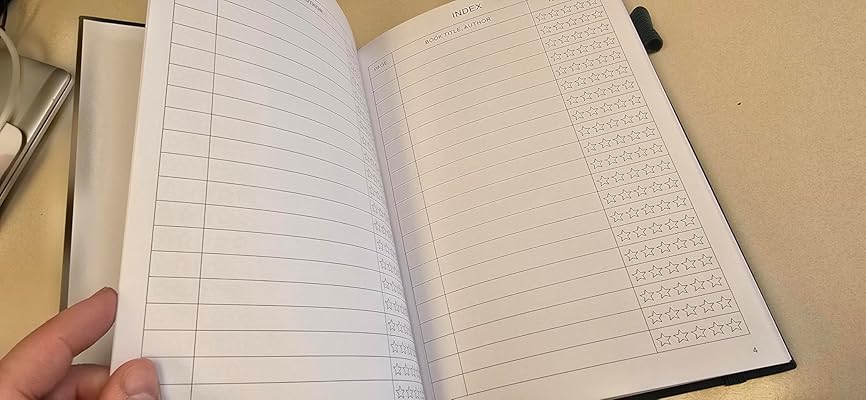 INDEX
PAGE
BOOK TITLE, AUTHOR
4